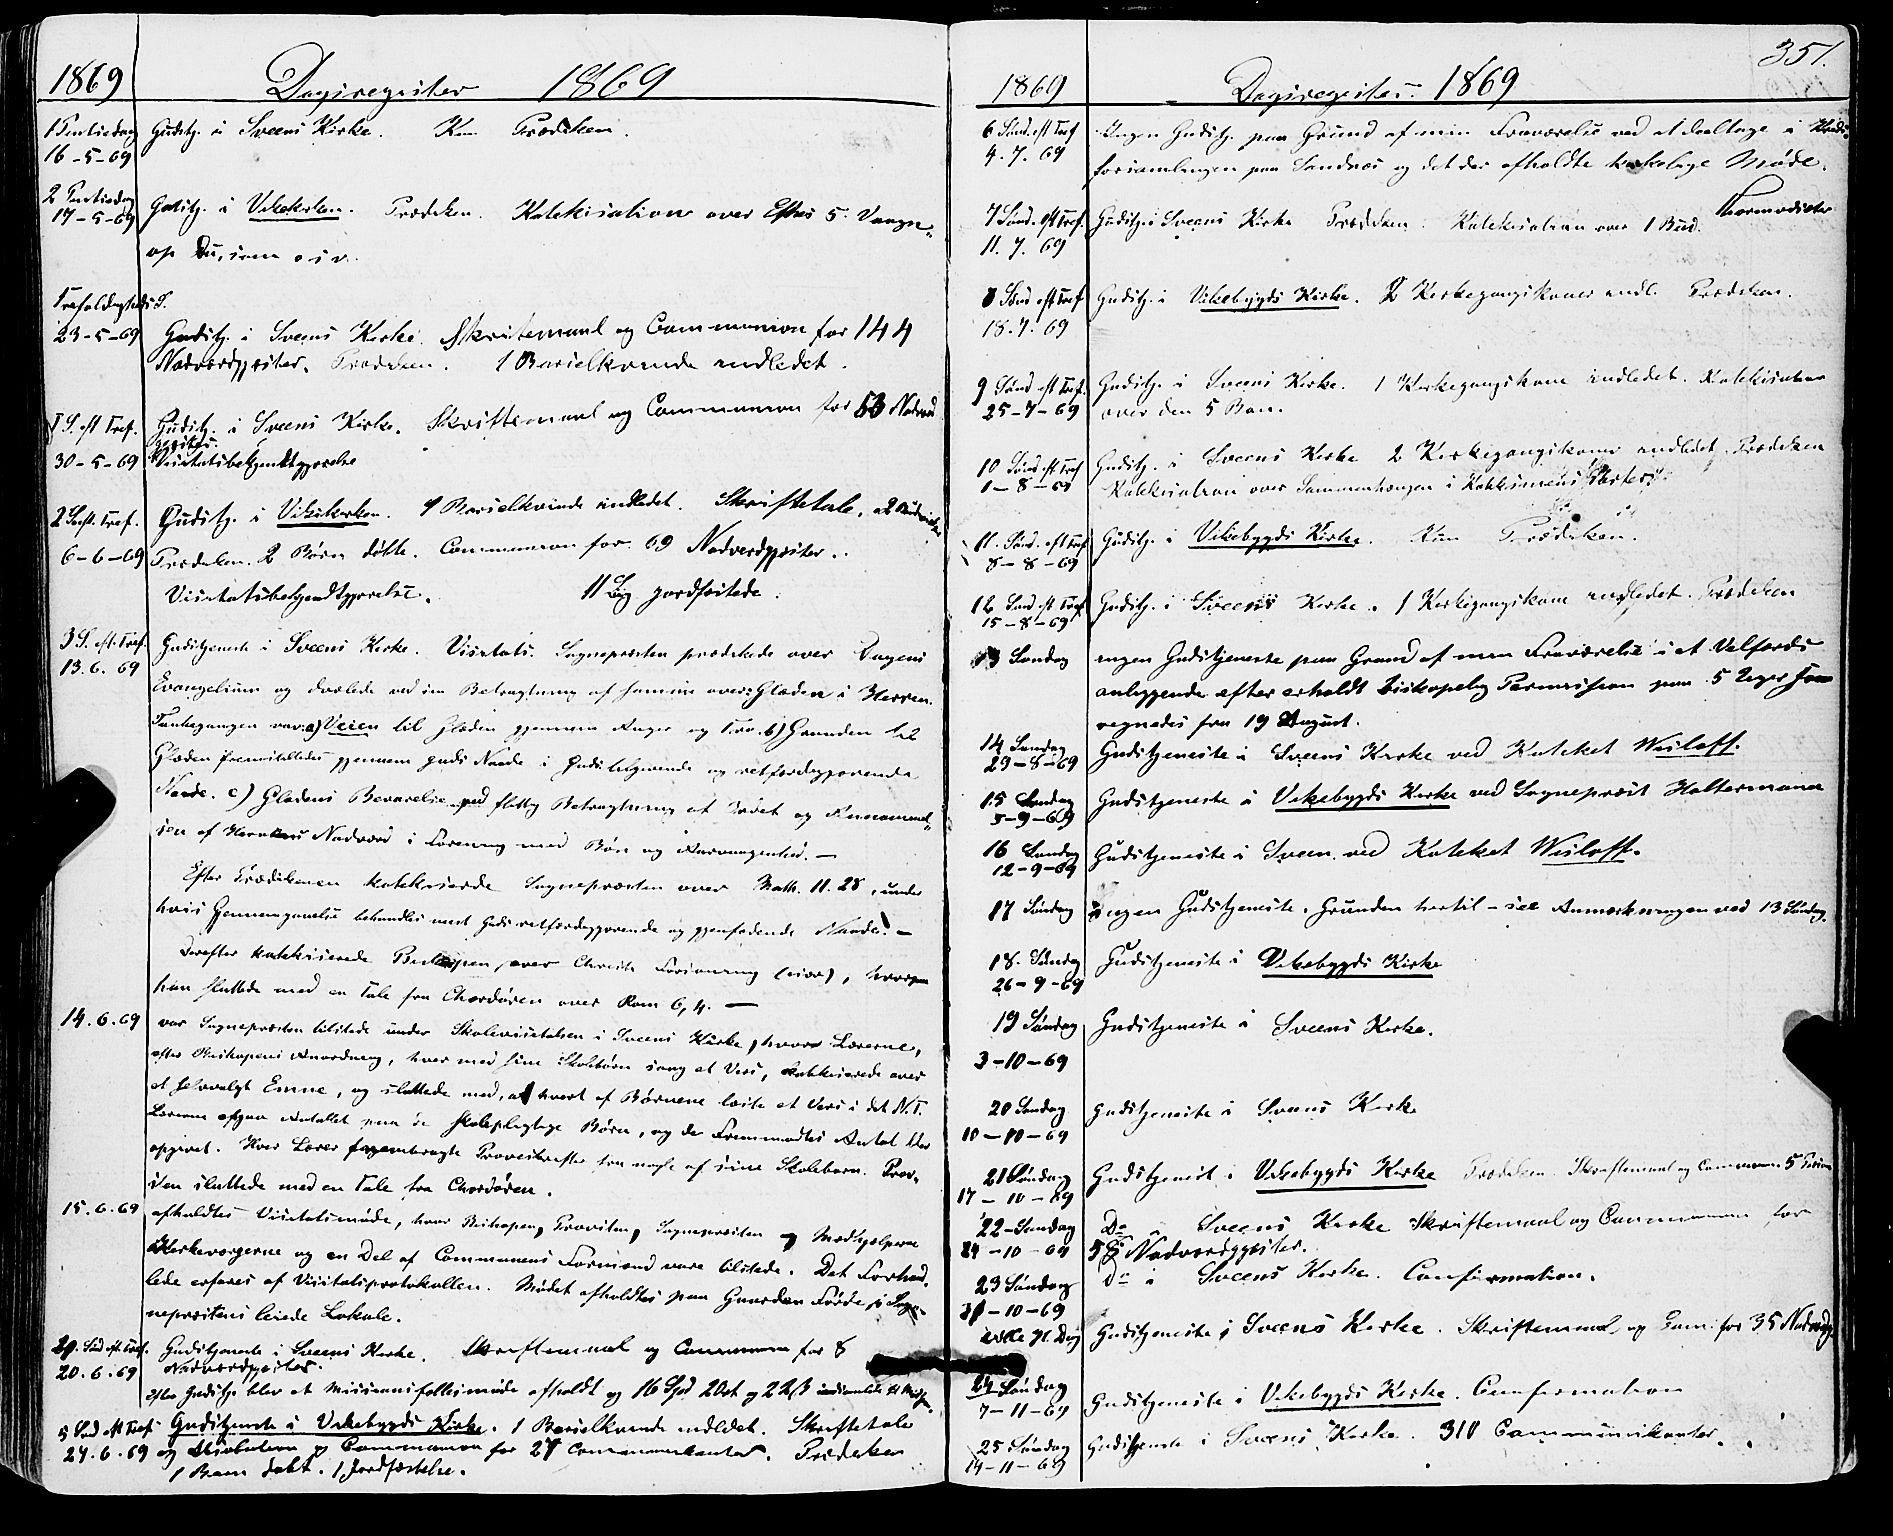 1869
Dagsregister 1869
1 Pintsedag Gudstj. i Sveens Kirke. Kun Prædiken.
16-5-69
2 Pintsedag
17-5-69 Gudstj. i Vikekirken. Prædiken. Katekisation over Efes 5. Vaagn
op Du, som osv.
Trefoldigheds S.
23-5-69 Gudstj. i Sveens Kirke. Skriftemaal og Communion for 144
Nadverdgjester. Prædiken. 1 Barselkvinde indledet.
1 S. eft Tref. Gudstj. i Sveens Kirke. Skriftemaal og Communion for 53 Nadverd
gjester.
30-5-69 Visitatsbekjendtgjørelse
2 S. eft. Tref. Gudstj. i Vikekirken. 1 Barselkvinde indledet. Skriftetale.
6-6-69 Prædiken. 2 Børn døbte. Communion for 69 Nadverdgjester.
Visitatsbekjendtgjørelse. 11 Lig jordfæstede.
3 S. eft. Tref. Gudstjeneste i Sveens Kirke. Visitats. Sognepræsten prædikede over Dagens
13.6.69 Evangelium og dvælede ved sin Betragtning af samme over: Glæden i Herren.
Tankegangen var: a) Veien til Glæden gjennem Anger og Tro. b) Grunden til
Glæden fremstilledes gjennem Guds Naade i Guds tilgivende og retfærdiggjørende
Naade. c) Glædens Bevarelse ved flittig Betragtning af Ordet og Annammel-
sen af Herrens Nadverd i Forening med Bøn og Aarvaagenhed. —
Efter Prædikenen katekiserede Sognepræsten over Math. 11.28, under
hvis Gjennemgaaelse behandles mest Guds retfærdiggjørende og gjenfødende Naade. —
Derefter katekiserede Bispen over Christi Forsoning, hvorpaa
han sluttede med en Tale fra Chordøren over Rom 6,4. —
14.6.69 var Sognepræsten tilstede under Skolevisitatsen i Sveens Kirke, hvor Lærerne,
efter Biskopens Anordning, hver med sine Skolebørn sang et Vers, katekiserede over
et selvvalgt Emne, og sluttede med, at hvert af Børnene læste et Vers i det N.T.
Lærerne opgav Antallet paa de skolepligtige Børn, og de Fremmødtes Antal blev
opgivet. Hver Lærer frembragte Prøveskrifter fra nogle af sine Skolebørn. Prov-
sten sluttede med en Tale fra Chordøren.
15.6.69 afholdtes Visitatsmøde, hvor Biskopen, Provsten, Sognepræsten og Medhjælperne
Kirkevergerne og en Del af Communens Formænd vare tilstede. Det Forhand-
lede erfares af Visitatsprotokollen. Mødet afholdtes paa Gaarden Førde, i Sog-
nepræstens leiede Lokale.
4. Sød. eft. Tref. Gudstjeneste i Sveens Kirke. Skriftemaal og Communion for 8
20.6.69 Nadverdgjester.
efter Gudstj. blev et Missionsfællesmøde afholdt og 16 Spd 2 Ort og 22 ß
5 Sød eft Tref Gudstjeneste i Vikebygds Kirke. 1 Barselkvinde indledet. Skriftetale
27.6.69 og Absolution og Communion for 27 Communikanter. Prædiken
1 Barn døbt. 1 Jordfæstelse.
351.
1869
Dagsregister 1869
6 Sønd. eft Tref Ingen Gudstj. paa Grund af min Fraværelse ved at deeltage i Kreds
4.7.69 forsamlingen paa Sandnes og det der afholdte kirkelige Møde.
Thormodsæter
7 Sønd. eft Tref. Gudstj. i Sveens Kirke Prædiken. Katekisation over 1 Bud.
11.7.69
8 Sønd eft Tref Gudstj. i Vikebygds Kirke. 2 Kirkegangskoner indl. Prædiken.
18.7.69
9 Sønd eft Tref. Gudstj. i Sveens Kirke. 1 Kirkegangskone indledet. Katekisation
25-7-69 over den 5 Bøn.
10 Sønd eft Tref Gudstj. i Sveens Kirke 2 Kirkegangskoner indledet. Prædiken
1-8-69 Katekisation over Sammenhængen i Katekismens Parter.
11. Sønd. eft Tref Gudstj. i Vikebygds Kirke. Kun Prædiken.
8-8-69
12 Sønd eft Tref Gudstj. i Sveens Kirke. 1 Kirkegangskone indledet. Prædiken
15-8-69
13 Søndag ingen Gudstjeneste paa Grund af min Fraværelse i et Velfærds
anliggende efter erholdt biskopelig Permission paa 5 Uger som
regnedes fra 19 August.
14 Søndag
29-8-69 Gudstjeneste i Sveens Kirke ved Kateket Wisløff.
15 Søndag Gudstjeneste i Vikebygds Kirke ved Sognepræst Haltermann
5-9-69
16 Søndag Gudstjeneste i Sveen ved Kateket Wisløff.
12-9-69
17 Søndag ingen Gudstjeneste. Grunden hertil - see Anmærkningen ved 13 Søndag.
18. Søndag Gudstjeneste i Vikebygds Kirke
26-9-69
19 Søndag Gudstjeneste i Sveens Kirke.
3-10-69
20 Søndag Gudstjeneste i Sveens Kirke
10-10-69
21 Søndag Gudstjenest i Vikebygds Kirke Prædiken. Skriftemaal og Communion 5
17-10-69
22-Søndag Do i Sveens Kirke Skriftemaal og Communion for
24-10-69 Nadverdgjester.
23 Søndag Do i Sveens Kirke. Confirmation.
31-10-69
Alle H. Dag Gudstjeneste i Sveens Kirke. Skriftemaal og Com. for 35 Nadverdgj.
24 Søndag
7-11-69 Gudstjeneste i Vikebygds Kirke. Confirmation
25 Søndag Gudstjeneste i Sveens Kirke. 310 Communikanter.
14-11-69